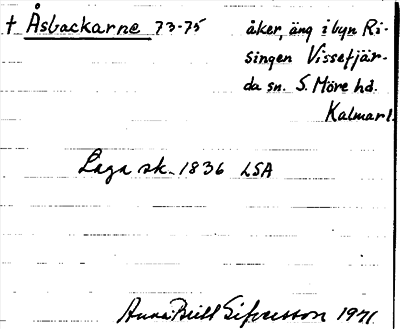 † Åsbackarne 73-75 åker, äng i byn Ri-
singen Vissefjär-
da sn. S. Möre hd.
Kalmar l.
Laga sk. 1836 LSA
Anna-Britt Sifvertsson 1971